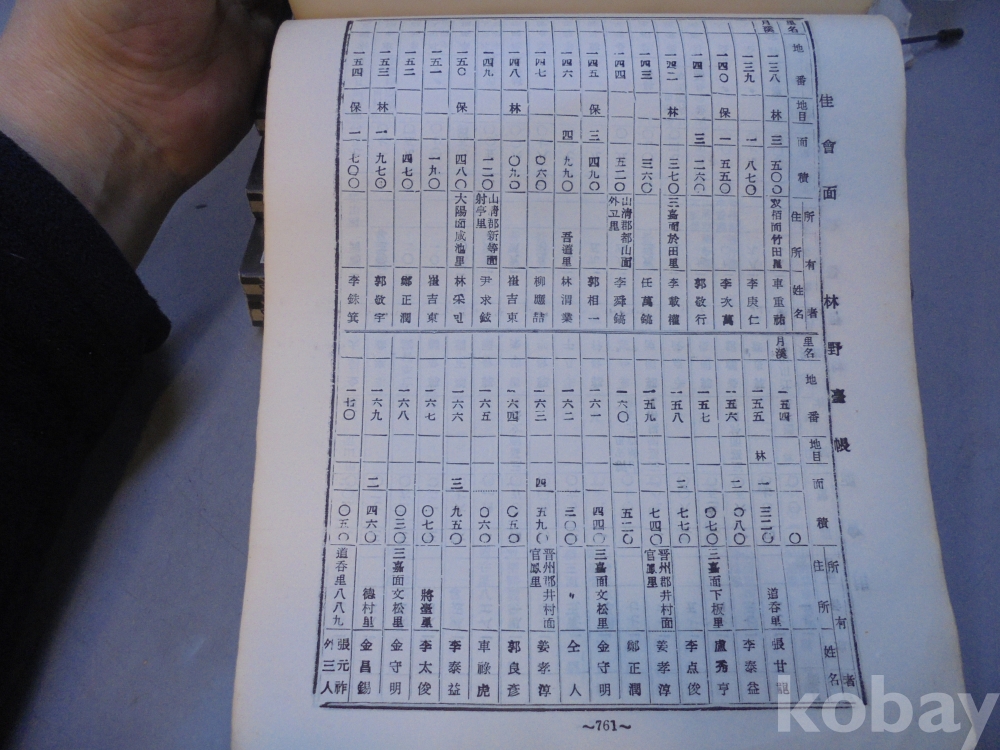 佳會面 林野臺帳
里名 地番 地目 面積 所有者 住所 姓名
月溪 一三八 林 三 五〇〇 双佰面竹田里 車重祐
一三九 一 八七〇 李庚仁
一四〇 保 一 五五〇 李次萬
一四一 三 二六〇 郭敬行
一四二 林 三七〇 三嘉面於田里 李載權
一四三 三六〇 任萬鎬
一四四 五二〇 山清郡都山面外卫里 李舜鎬
一四五 保 三 四九〇 郭相一
一四六 四 九九〇 吾道里 林渭業
一四七 〇六〇 柳應喆
一四八 林 〇九〇 崔吉東
一四九 一二〇 山清郡新等面射亭里 尹求鉉
一五〇 保 四八〇 大陽面咸池里 林采
一五一 一九〇 崔吉東
一五二 四七〇 鄭正潤
一五三 林 一 九七〇 郭敬宇
一五四 保 一 七〇〇 李銖箕
里名 地番 地目 面積 所有者 住所 姓名
月溪 一五四 〇 道呑里 張廿龍
一五五 林 一 三二〇 李泰益
一五六 二 〇八〇 盧秀亨
一五七 〇七〇 三嘉面下板里 李点俊
一五八 二 七七〇 晋州郡井村面官鳳里 姜孝淳
一五九 七四〇 鄭正潤
一六〇 五二〇
一六一 四四〇 三嘉面文松里 金守明
一六二 三〇〇 〃 仝人
一六三 四 五九〇 晋州郡井村面官鳳里 姜孝淳
一六四 〇五〇 郭良彦
一六五 〇六〇 車祿虎
一六六 三 九五〇 李泰益
一六七 〇七〇 將臺里 李太俊
一六八 〇三〇 三嘉面文松里 金守明
一六九 二 四六〇 德村里 金昌錫
一七〇 〇五〇 道呑里八八九 張元祚外三人
~761~
kobay